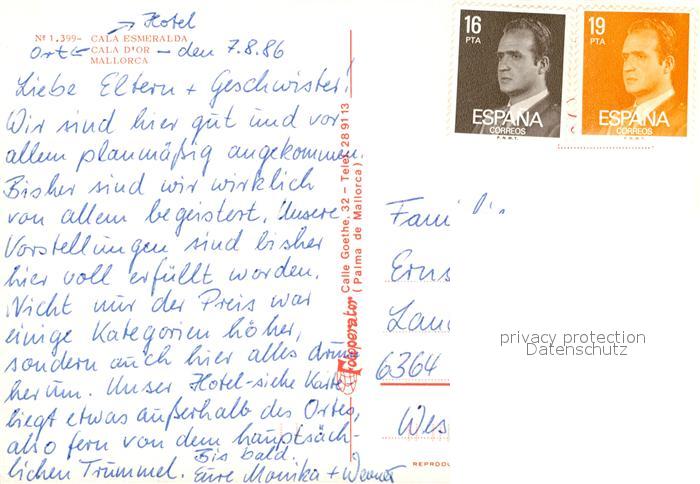 → Hotel
Nº 1.399- CALA ESMERALDA
Ort ← CALA D'OR - den 7.8.86
MALLORCA
Liebe Eltern + Geschwister!
Wir sind hier gut und vor
allem planmäßig angekommen.
Bisher sind wir wirklich
von allem begeistert. Unsere
Vorstellungen sind bisher
hier voll erfüllt worden.
Nicht nur der Preis war
einige Kategorien höher,
sondern auch hier alles drum-
herum. Unser Hotel - siehe Karte
liegt etwas außerhalb des Ortes,
also fern von dem hauptsäch-
lichen Trummel. Bis bald.
Eure Monika + Werner
Cooperator Calle Goethe, 32 - Telef. 28 91 13
(Palma de Mallorca)
16
PTA
ESPAÑA
CORREOS
F.N.M.T.
19
PTA
ESPAÑA
CORREOS
F.N.M.T.
Fami
Erns
Lan
6364
Wes
REPRODU
privacy protection
Datenschutz